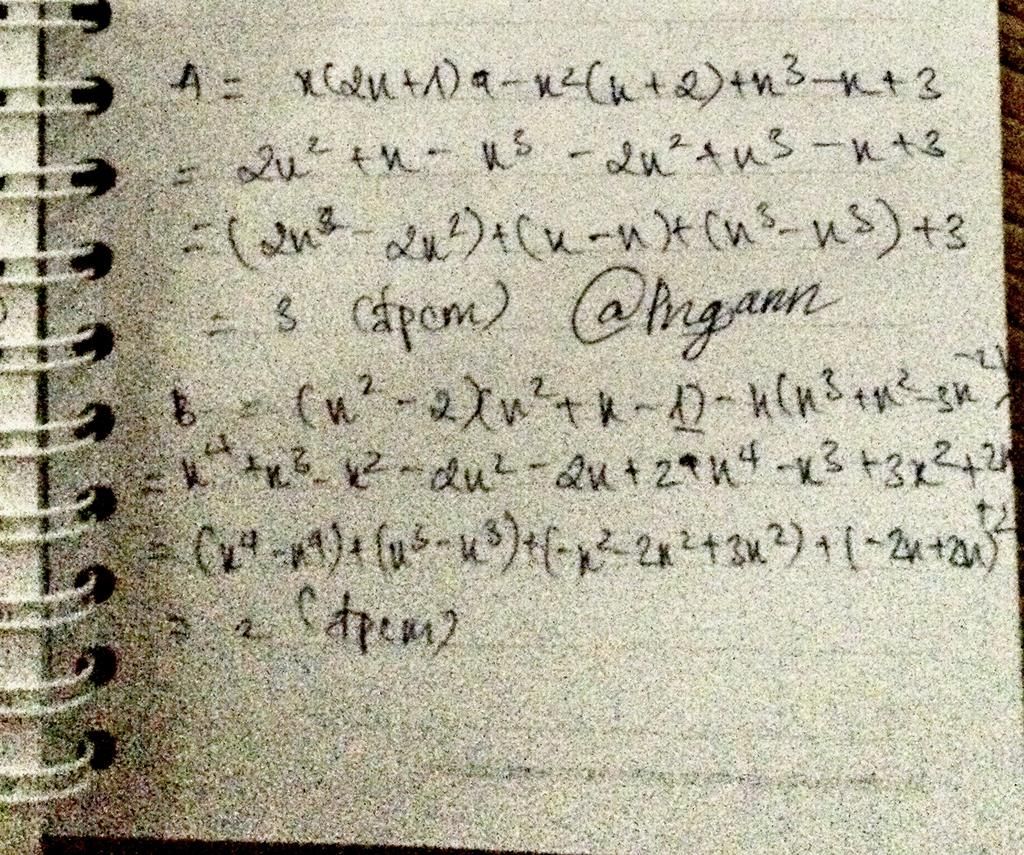 A = x(2x+1) - x²(x+2)+x³-x+3
= 2x² + x - x³ - 2x² + x³ - x + 3
= (2x² - 2x²)+(x-x)+(x³-x³)+3
= 3 (đpcm) @lingann
B = (x² - 2)(x² + x - 1) - x(x³+x²-3x-2)
= x⁴ + x³ - x² - 2x² - 2x + 2 - x⁴ - x³ + 3x² + 2x
= (x⁴ - x⁴)+(x³-x³)+(-x²-2x²+3x²)+(-2x+2x)+2
= 2 (đpcm)